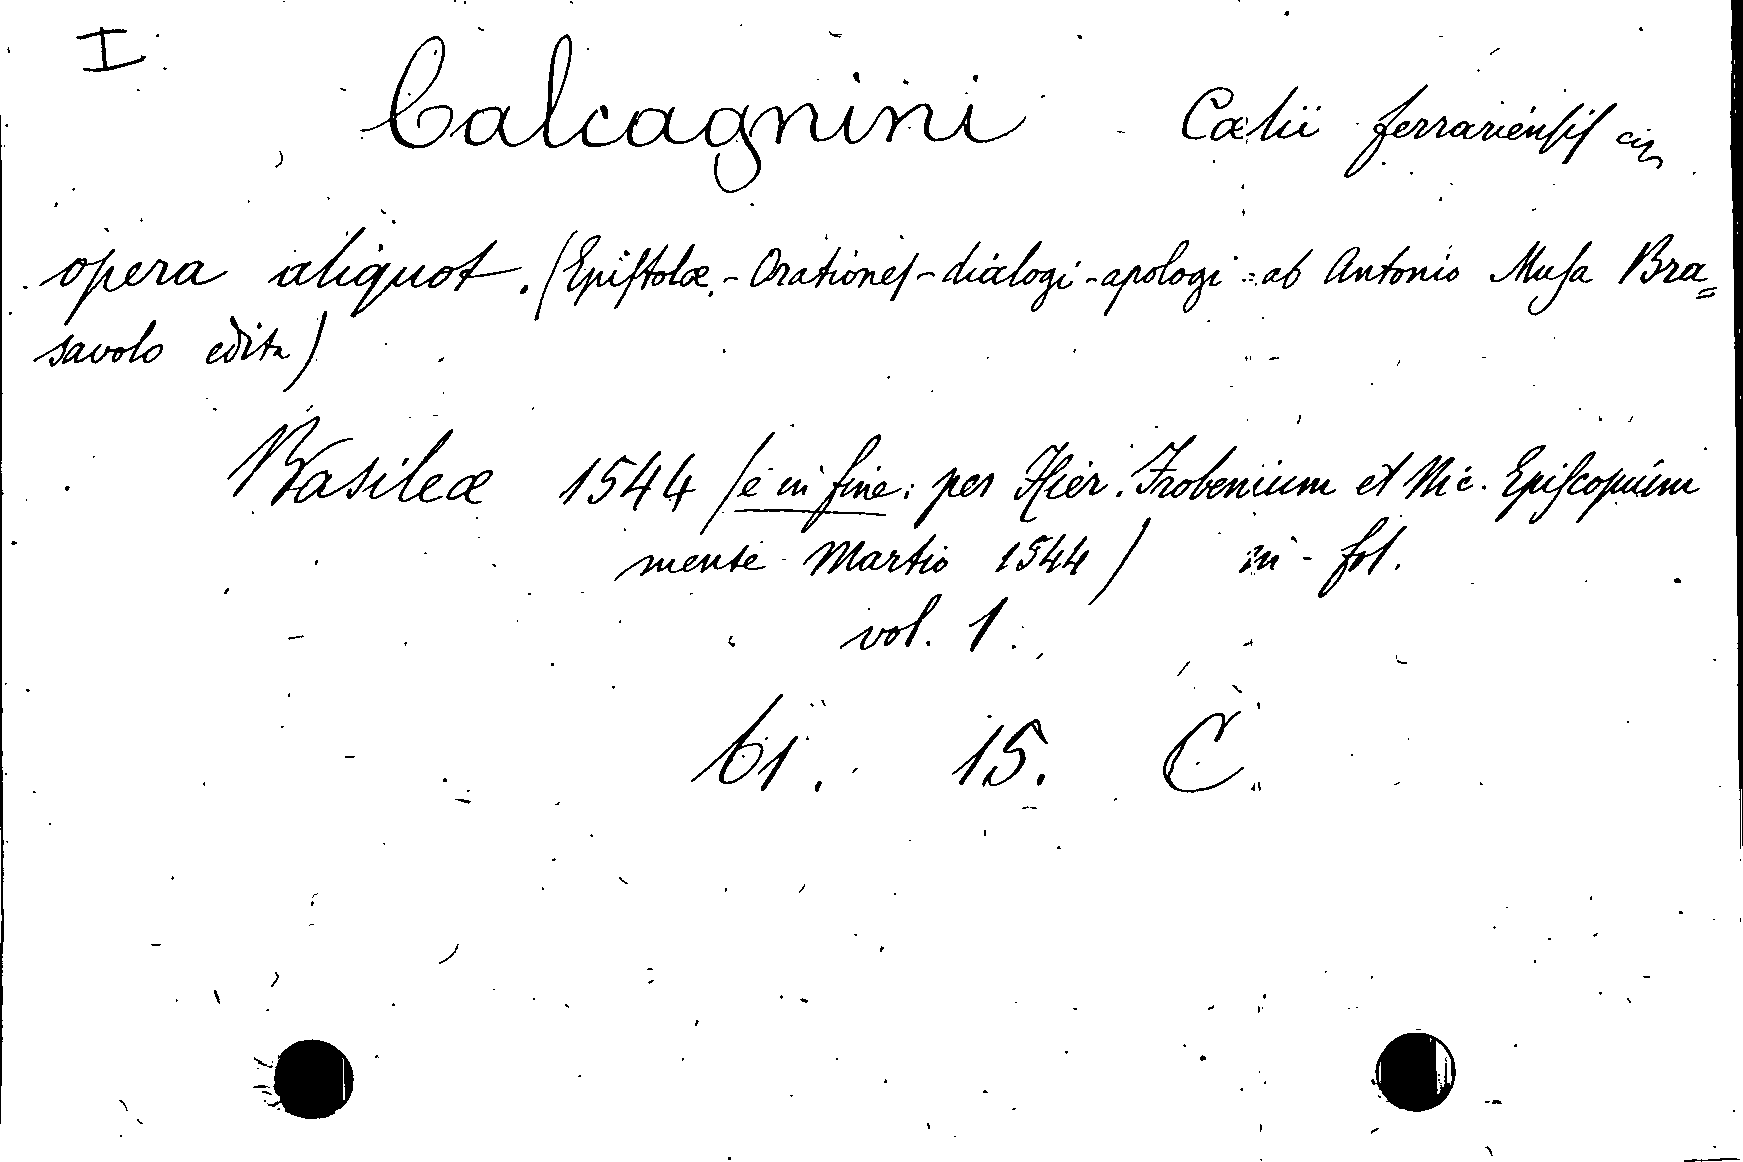 I
Calcagnini Cælii ferrarienſiſ
opera aliquot. (Epiſtolæ - Orationeſ - dialogi - apologi = ab Antonio Muſa Bra=
savolo edita)
Basileæ 1544 (e in fine: per Hier. Frobenium et Nic. Epiſcopium
mense Martio 1544) in-fol.
vol. 1.
61. 15. C.